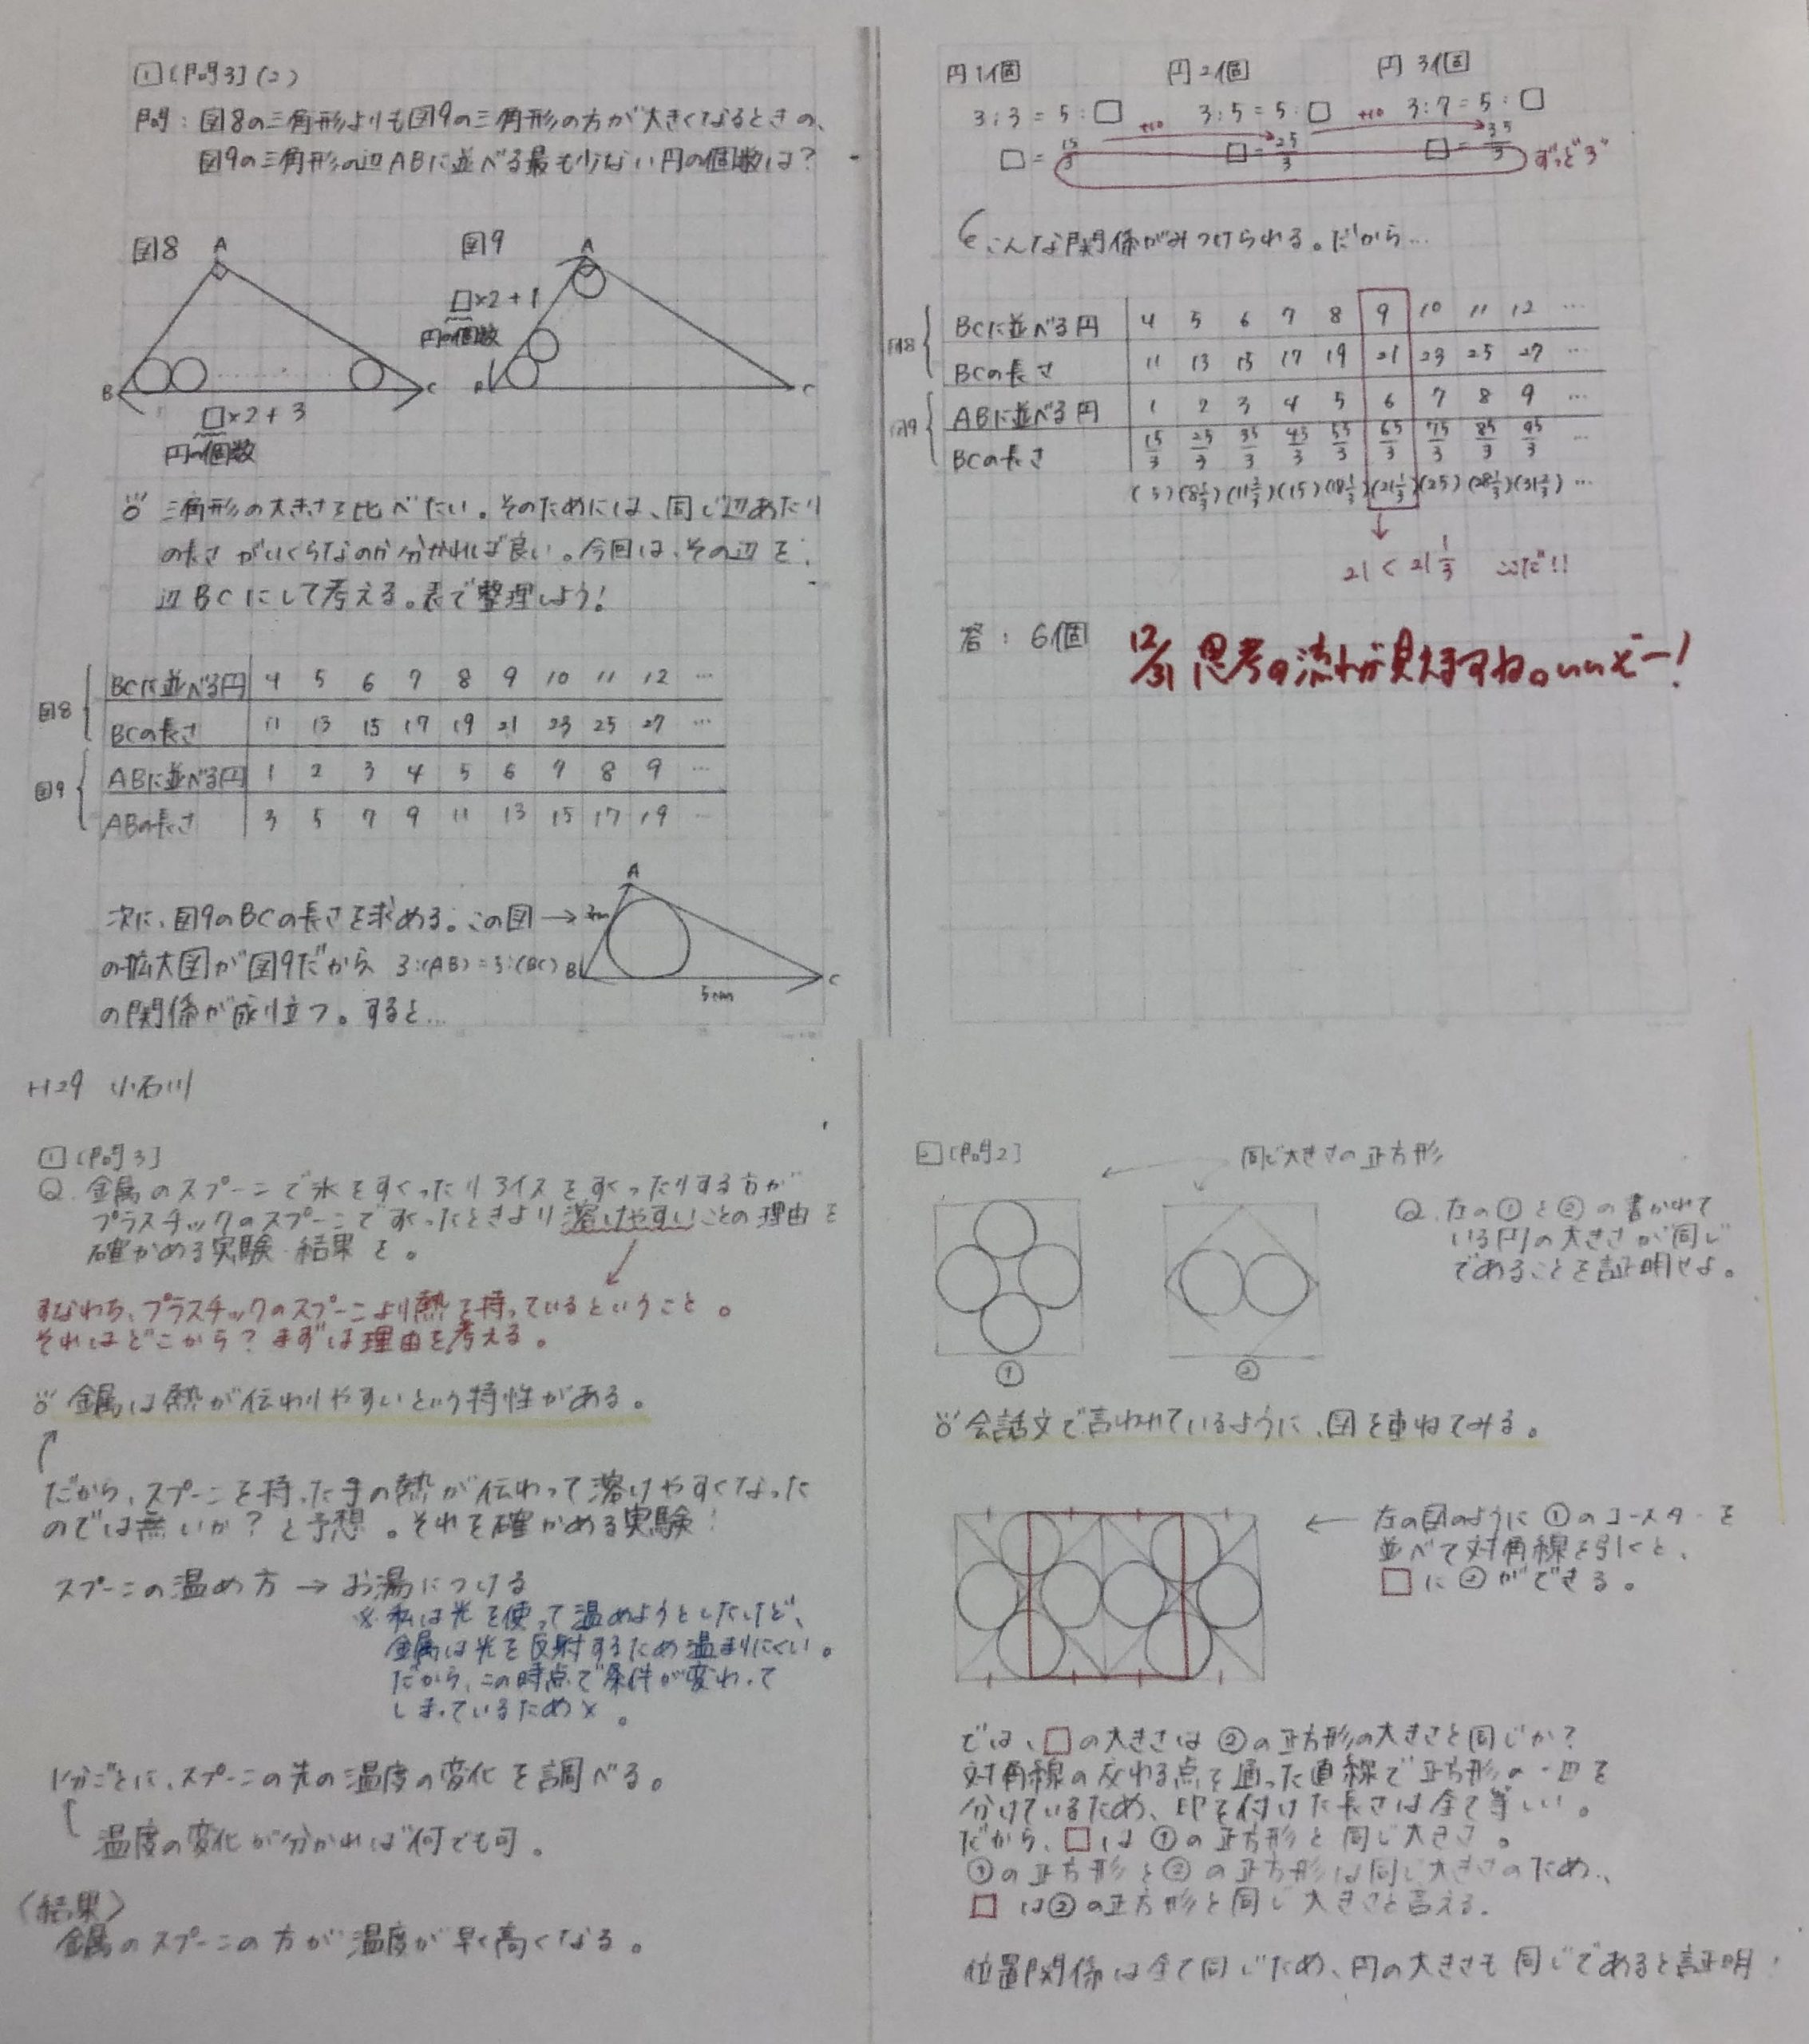 1 [問3] (2)
問：図8の三角形よりも図9の三角形の方が大きくなるときの、
図9の三角形の辺ABに並べる最も少ない円の個数は？
図8
A
B
C
□×2+3
円の個数
図9
A
□×2+1
円の個数
B
C
三角形の大きさを比べたい。そのためには、同じ辺あたり
の長さがいくらなのか分かれば良い。今回は、その辺を
辺BCにして考える。表で整理しよう！
図8
BCに並べる円 4 5 6 7 8 9 10 11 12 …
BCの長さ 11 13 15 17 19 21 23 25 27 …
図9
ABに並べる円 1 2 3 4 5 6 7 8 9 …
ABの長さ 3 5 7 9 11 13 15 17 19 …
次に、図9のBCの長さを求める。この図→
の拡大図が図9だから 3:(AB)=5:(BC)
の関係が成り立つ。すると…
A
3cm
B
5cm
C
円1個 円2個 円3個
3:3=5:□ +10 3:5=5:□ +10 3:7=5:□
□=15/3 □=25/3 □=35/3 ずっと3
こんな関係がみつけられる。だから…
図8
BCに並べる円 4 5 6 7 8 9 10 11 12 …
BCの長さ 11 13 15 17 19 21 23 25 27 …
図9
ABに並べる円 1 2 3 4 5 6 7 8 9 …
BCの長さ 15/3 25/3 35/3 45/3 55/3 65/3 75/3 85/3 95/3 …
(5) (8 1/3) (11 2/3) (15) (18 1/3) (21 1/3) (25) (28 1/3) (31 2/3) …
21 < 21 1/3 ここだ!!
答：6個
12/31 思考の流れが見えますね。いいぞー！
H29 小石川
1 [問3]
Q. 金属のスプーンで氷をすくったりアイスをすくったりする方が
プラスチックのスプーンですくったときより溶けやすいことの理由を
確かめる実験・結果を。
すなわち、プラスチックのスプーンより熱を持っているということ。
それはどこから？まずは理由を考える。
金属は熱が伝わりやすいという特性がある。
だから、スプーンを持った手の熱が伝わって溶けやすくなった
のでは無いか？と予想。それを確かめる実験！
スプーンの温め方 → お湯につける
※私は光を使って温めようとしたけど、
金属は光を反射するため温まりにくい。
だから、この時点で条件が変わって
しまっているため×。
1分ごとに、スプーンの先の温度の変化を調べる。
温度の変化が分かれば何でも可。
〈結果〉
金属のスプーンの方が温度が早く高くなる。
[問2]
同じ大きさの正方形
①
②
Q. 左の①と②の書かれて
いる円の大きさが同じ
であることを証明せよ。
会話文で言われているように、図を重ねてみる。
← 左の図のように①のコースターを
並べて対角線を引くと、
□に②ができる。
では、□の大きさは②の正方形の大きさと同じか？
対角線の交わる点を通った直線で正方形の一辺を
分けているため、印を付けた長さは全て等しい。
だから、□は①の正方形と同じ大きさ。
①の正方形と②の正方形は同じ大きさのため、
□は②の正方形と同じ大きさと言える。
位置関係は全て同じため、円の大きさも同じであると証明！